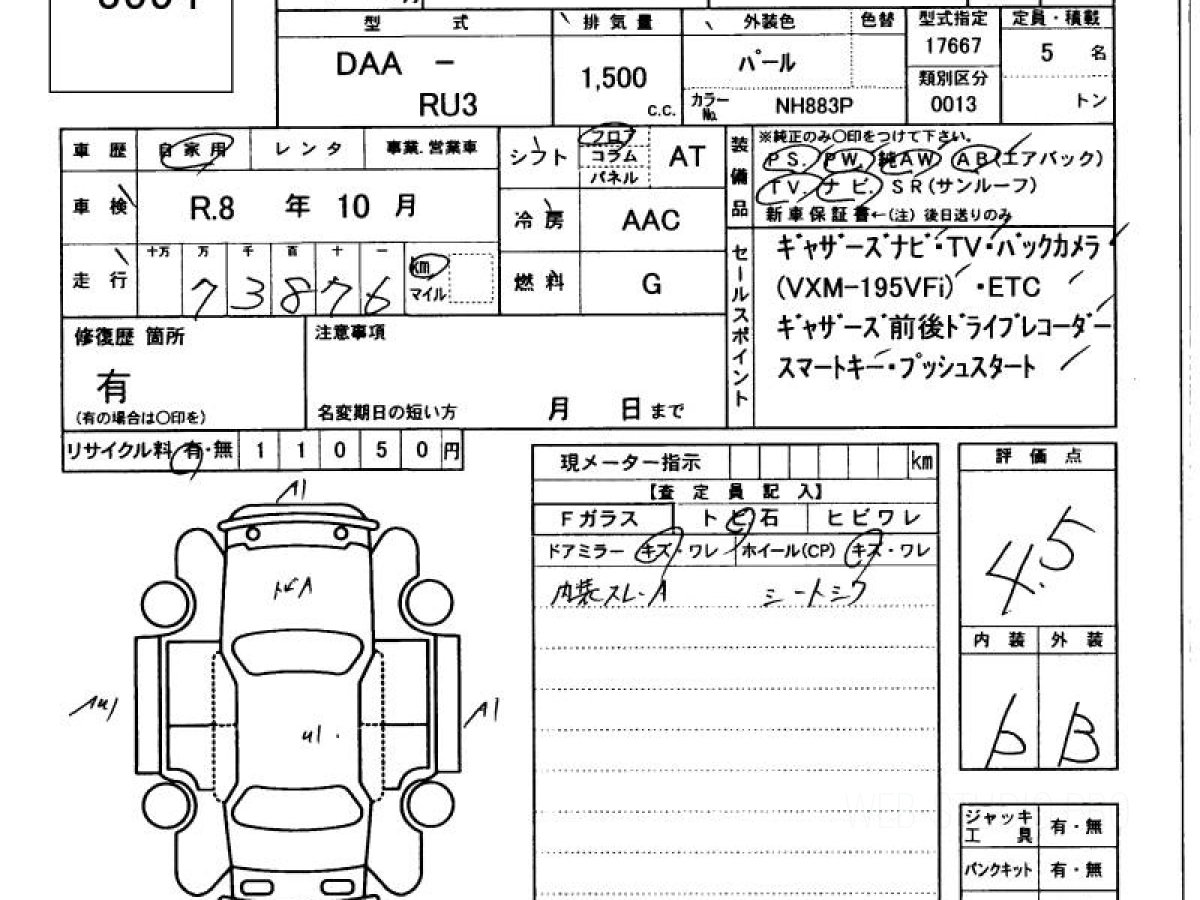 型 式 排気量 外装色 色替 型式指定 定員・積載
DAA － パール 17667 5 名
1,500 類別区分
RU3 c.c. カラーNo. NH883P 0013 トン
車歴 自家用 レンタ 事業.営業車 シフト フロア コラム パネル AT
装備品 ※純正のみ〇印をつけて下さい。
PS. PW. 純AW AB(エアバック)
TV. ナビ. SR(サンルーフ)
新車保証書←(注) 後日送りのみ
車検 R.8 年 10 月 冷房 AAC
走行 十万 万 千 百 十 一 km
7 3 8 7 6 マイル 燃料 G
セールスポイント
ギャザーズナビ・TV・バックカメラ
(VXM-195VFi) ・ETC
ギャザーズ前後ドライブレコーダー
スマートキー・プッシュスタート
修復歴 箇所 注意事項
有
(有の場合は〇印を) 名変期日の短い方 月 日 まで
リサイクル料 有・無 1 1 0 5 0 円
現メーター指示 km 評価点
【査定員記入】
Fガラス トビ石 ヒビワレ
ドアミラー キズ・ワレ ホイール(CP) キズ・ワレ
内装スレ・A シートシワ
4.5
内装 外装
b B
A1
トビA
AU1
A1
U1.
ジャッキ工具 有・無
パンクキット 有・無